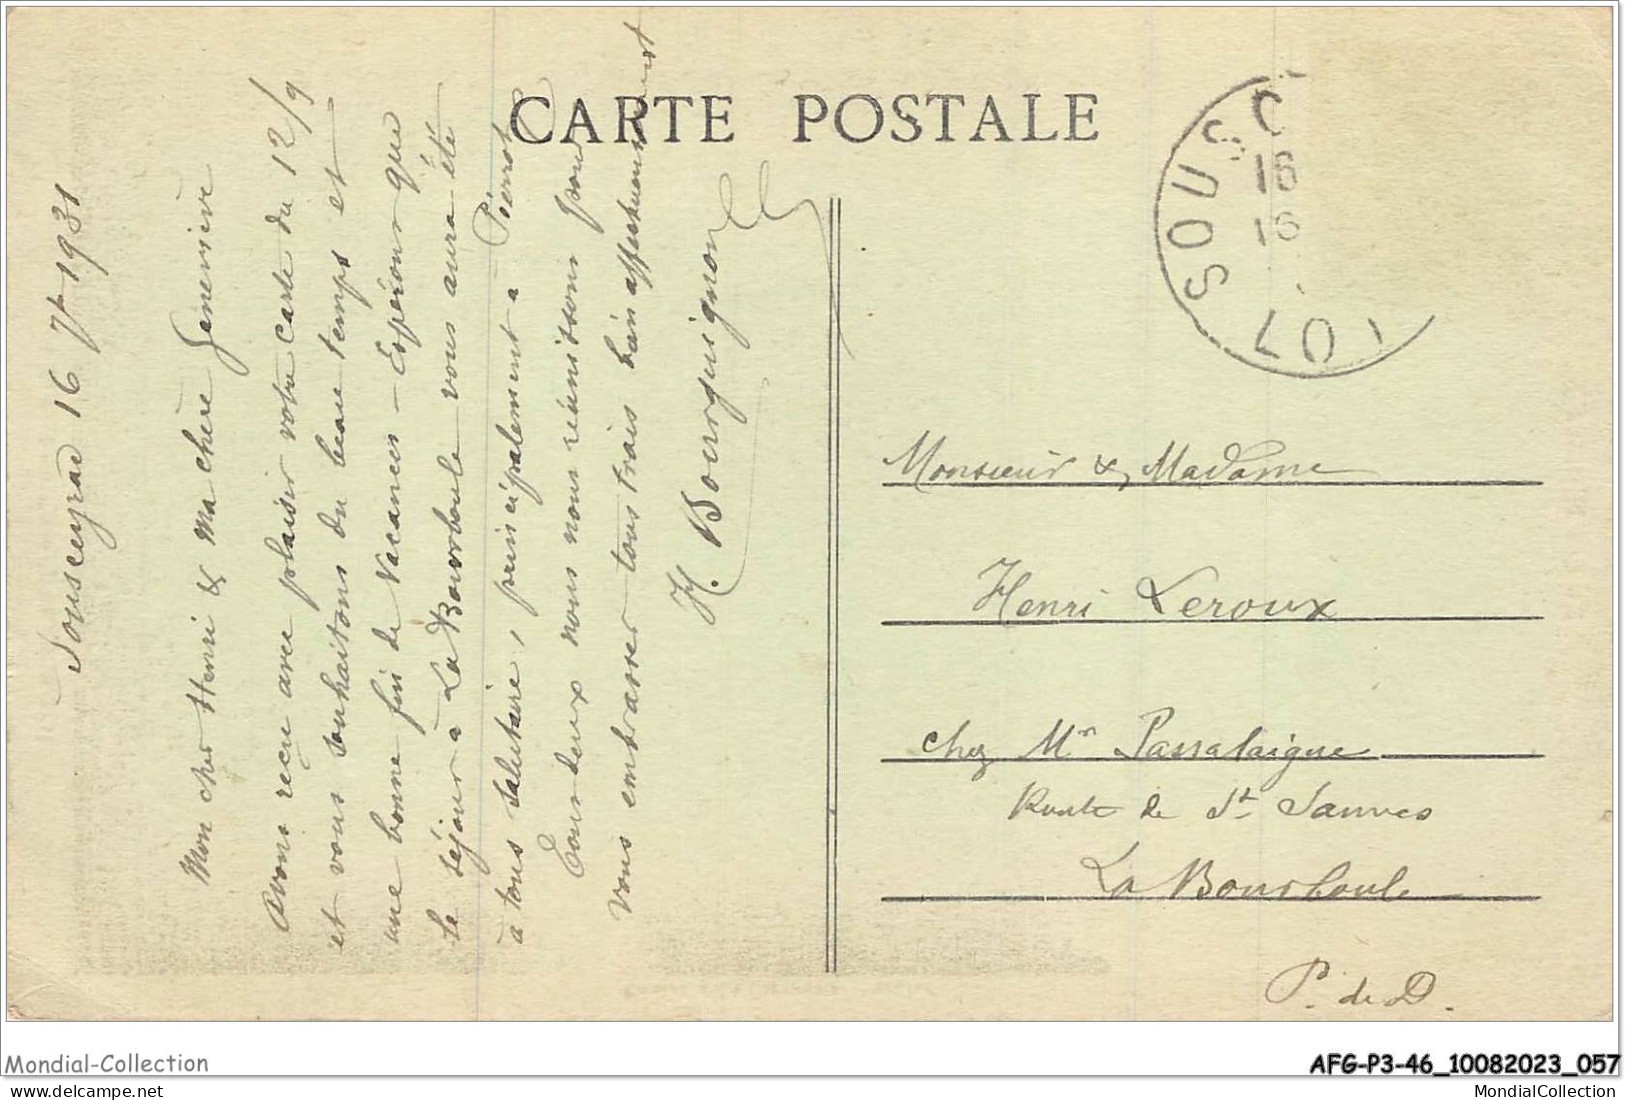 CARTE POSTALE
Sousceyrac 16 7bre 1931
Mon cher Henri & Ma chère Geneviève
Avons reçu avec plaisir votre carte du 12/9
et vous souhaitons du beau temps et
une bonne fin de Vacances - Espérons que
le séjour à La Bourboule vous aura été
à tous salutaire, principalement a Pierrot
Tous deux nous nous réunissons pour
vous embrasser tous trois bien affectueusement
H. Bourguignon
SOUS
16
16
LOT
Monsieur & Madame
Henri Leroux
chez Mr Passalaigue
Route de St Sauves
La Bourboule
P. de D.
Mondial-Collection
AFG-P3-46_10082023_057
MondialCollection